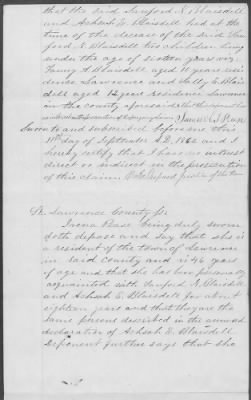 that the said Sanford N. Blaisdell
and Achsah E. Blaisdell had at the
time of the decease of the said San
ford N. Blaisdell two children living
under the age of sixteen years viz
Fanny A. Blaisdell aged 11 years resi
dence Lawrence and Sally E. Blais
dell aged 14 years residence Lawrence
in the county aforesaid
Samuel I. Pease
Sworn to and subscribed before me this
11th day of September A.D. 1862 and I
hereby certify that I have no interest
direct or indirect in the prosecution
of this claim. Justice of the Peace
St. Lawrence County ss
Pease being duly sworn
doth depose and say that she is
a resident of the town of Lawrence
in said county and is 46 years
of age and that she has been personally
acquainted with Sanford N. Blaisdell
and Achsah E. Blaisdell for about
eighteen years and that they are the
same persons described in the annexed
declaration of Achsah E. Blaisdell
Deponent further says that she